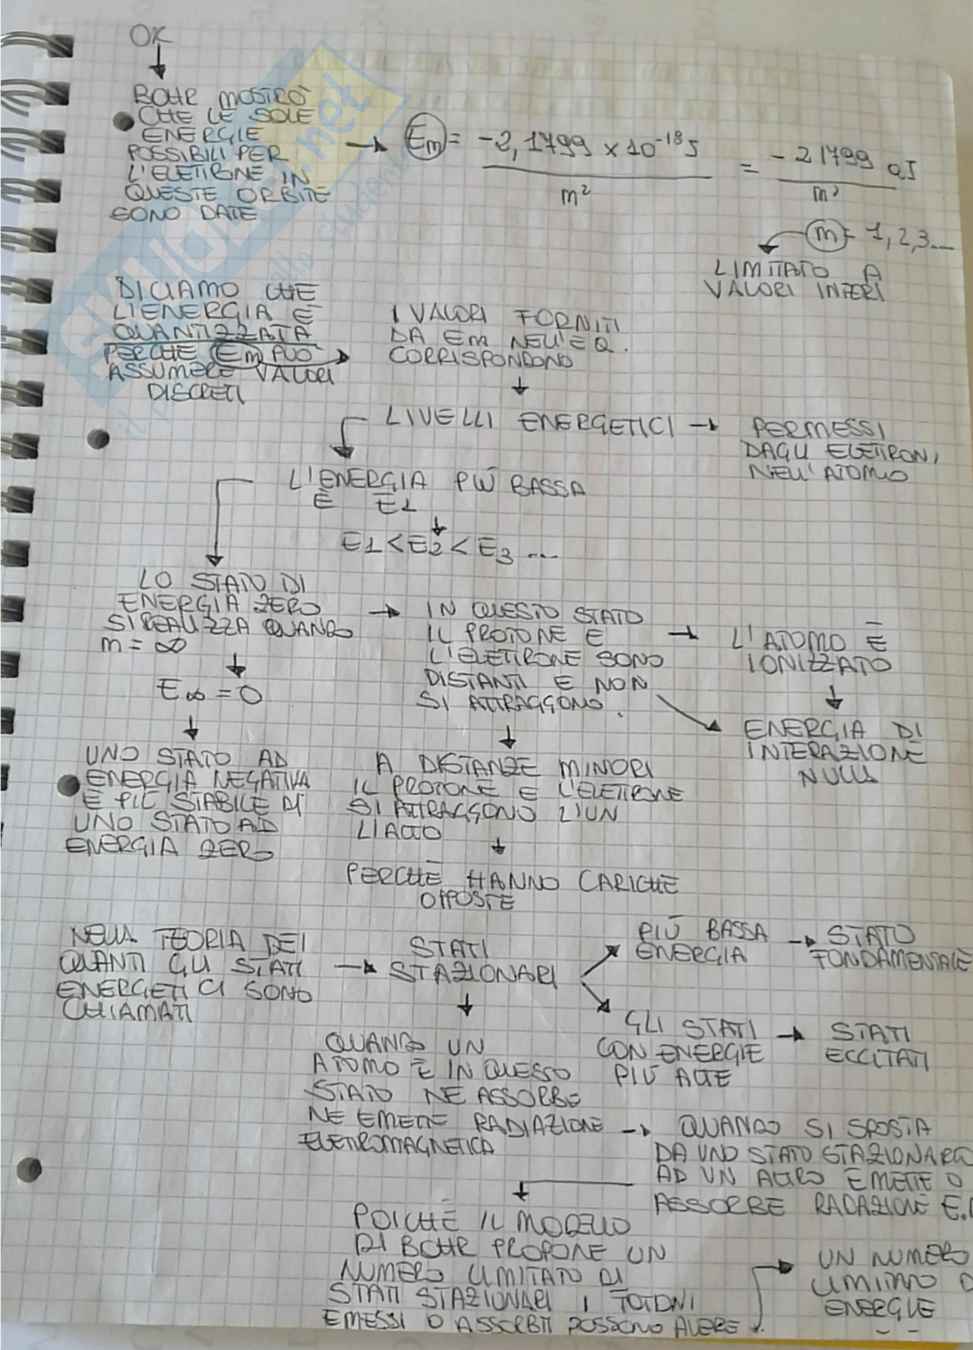 OK
BOHR MOSTRÒ
CHE LE SOLE
ENERGIE
POSSIBILI PER
L'ELETTRONE IN
QUESTE ORBITE
SONO DATE
Em = -2,1799 x 10^-18 J / m² = -21799 aJ / m²
m = 1, 2, 3...
LIMITATO A
VALORI INTERI
DICIAMO CHE
L'ENERGIA È
QUANTIZZATA
PERCHÈ Em PUO
ASSUMERE VALORI
DISCRETI
I VALORI FORNITI
DA Em NELL'EQ.
CORRISPONDONO
LIVELLI ENERGETICI → PERMESSI
DAGLI ELETTRONI
NELL'ATOMO
L'ENERGIA PIÙ BASSA
È E1
E1 < E2 < E3 ...
LO STATO DI
ENERGIA ZERO
SI REALIZZA QUANDO
m = ∞
E∞ = 0
IN QUESTO STATO
IL PROTONE E
L'ELETTRONE SONO
DISTANTI E NON
SI ATTRAGGONO.
L'ATOMO È
IONIZZATO
ENERGIA DI
INTERAZIONE
NULLA
UNO STATO AD
ENERGIA NEGATIVA
È PIÙ STABILE DI
UNO STATO AD
ENERGIA ZERO
A DISTANZE MINORI
IL PROTONE E L'ELETTRONE
SI ATTRAGGONO L'UN
L'ALTRO
PERCHÈ HANNO CARICHE
OPPOSTE
NELLA TEORIA DEI
QUANTI GLI STATI
ENERGETICI SONO
CHIAMATI
STATI
STAZIONARI
PIÙ BASSA
ENERGIA
STATO
FONDAMENTALE
GLI STATI
CON ENERGIE
PIÙ ALTE
STATI
ECCITATI
QUANDO UN
ATOMO È IN QUESTO
STATO NE ASSORBE
NE EMETTE RADIAZIONE
ELETTROMAGNETICA
QUANDO SI SPOSTA
DA UNO STATO STAZIONARIO
AD UN ALTRO EMETTE O
ASSORBE RADAZIONE E.
POICHÈ IL MODELLO
DI BOHR PROPONE UN
NUMERO LIMITATO DI
STATI STAZIONARI I FOTONI
EMESSI O ASSORBITI POSSONO AVERE
UN NUMERO
LIMITATO D
ENERGIE